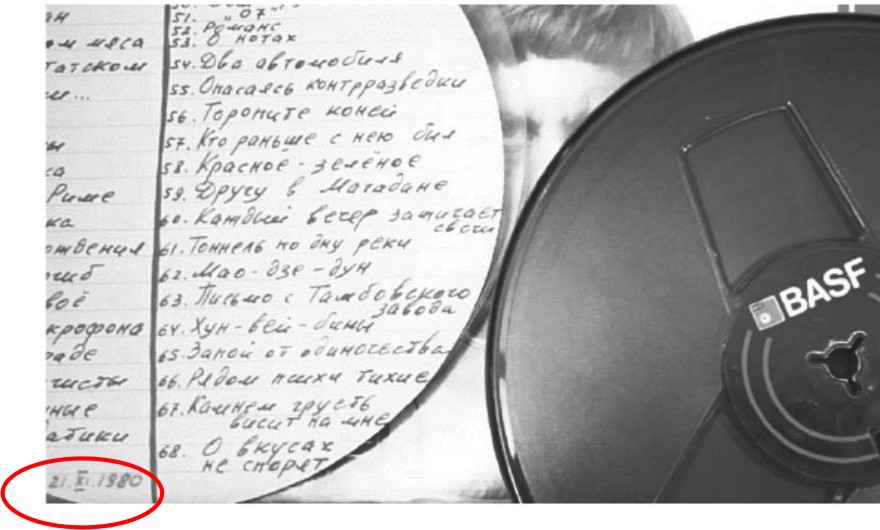 ан
ом мяса
татском
и...
ы
ка
Риме
ка
ождения
гиб
воё
крофона
раде
чисты
ные
атики
21.XI.1980
51. "07"
52. Романс
53. О нотах
54. Два автомобиля
55. Опасаясь контрразведки
56. Торопите коней
57. Кто раньше с нею был
58. Красное - зелёное
59. Другу в Магадане
60. Каждый вечер зажигает
свечи
61. Тоннель по дну реки
62. Мао - дзе - дун
63. Письмо с Тамбовского
завода
64. Хун - вей - бины
65. Запой от одиночества
66. Рядом психи тихие
67. Камнем грусть
висит на мне
68. О вкусах
не спорят
BASF